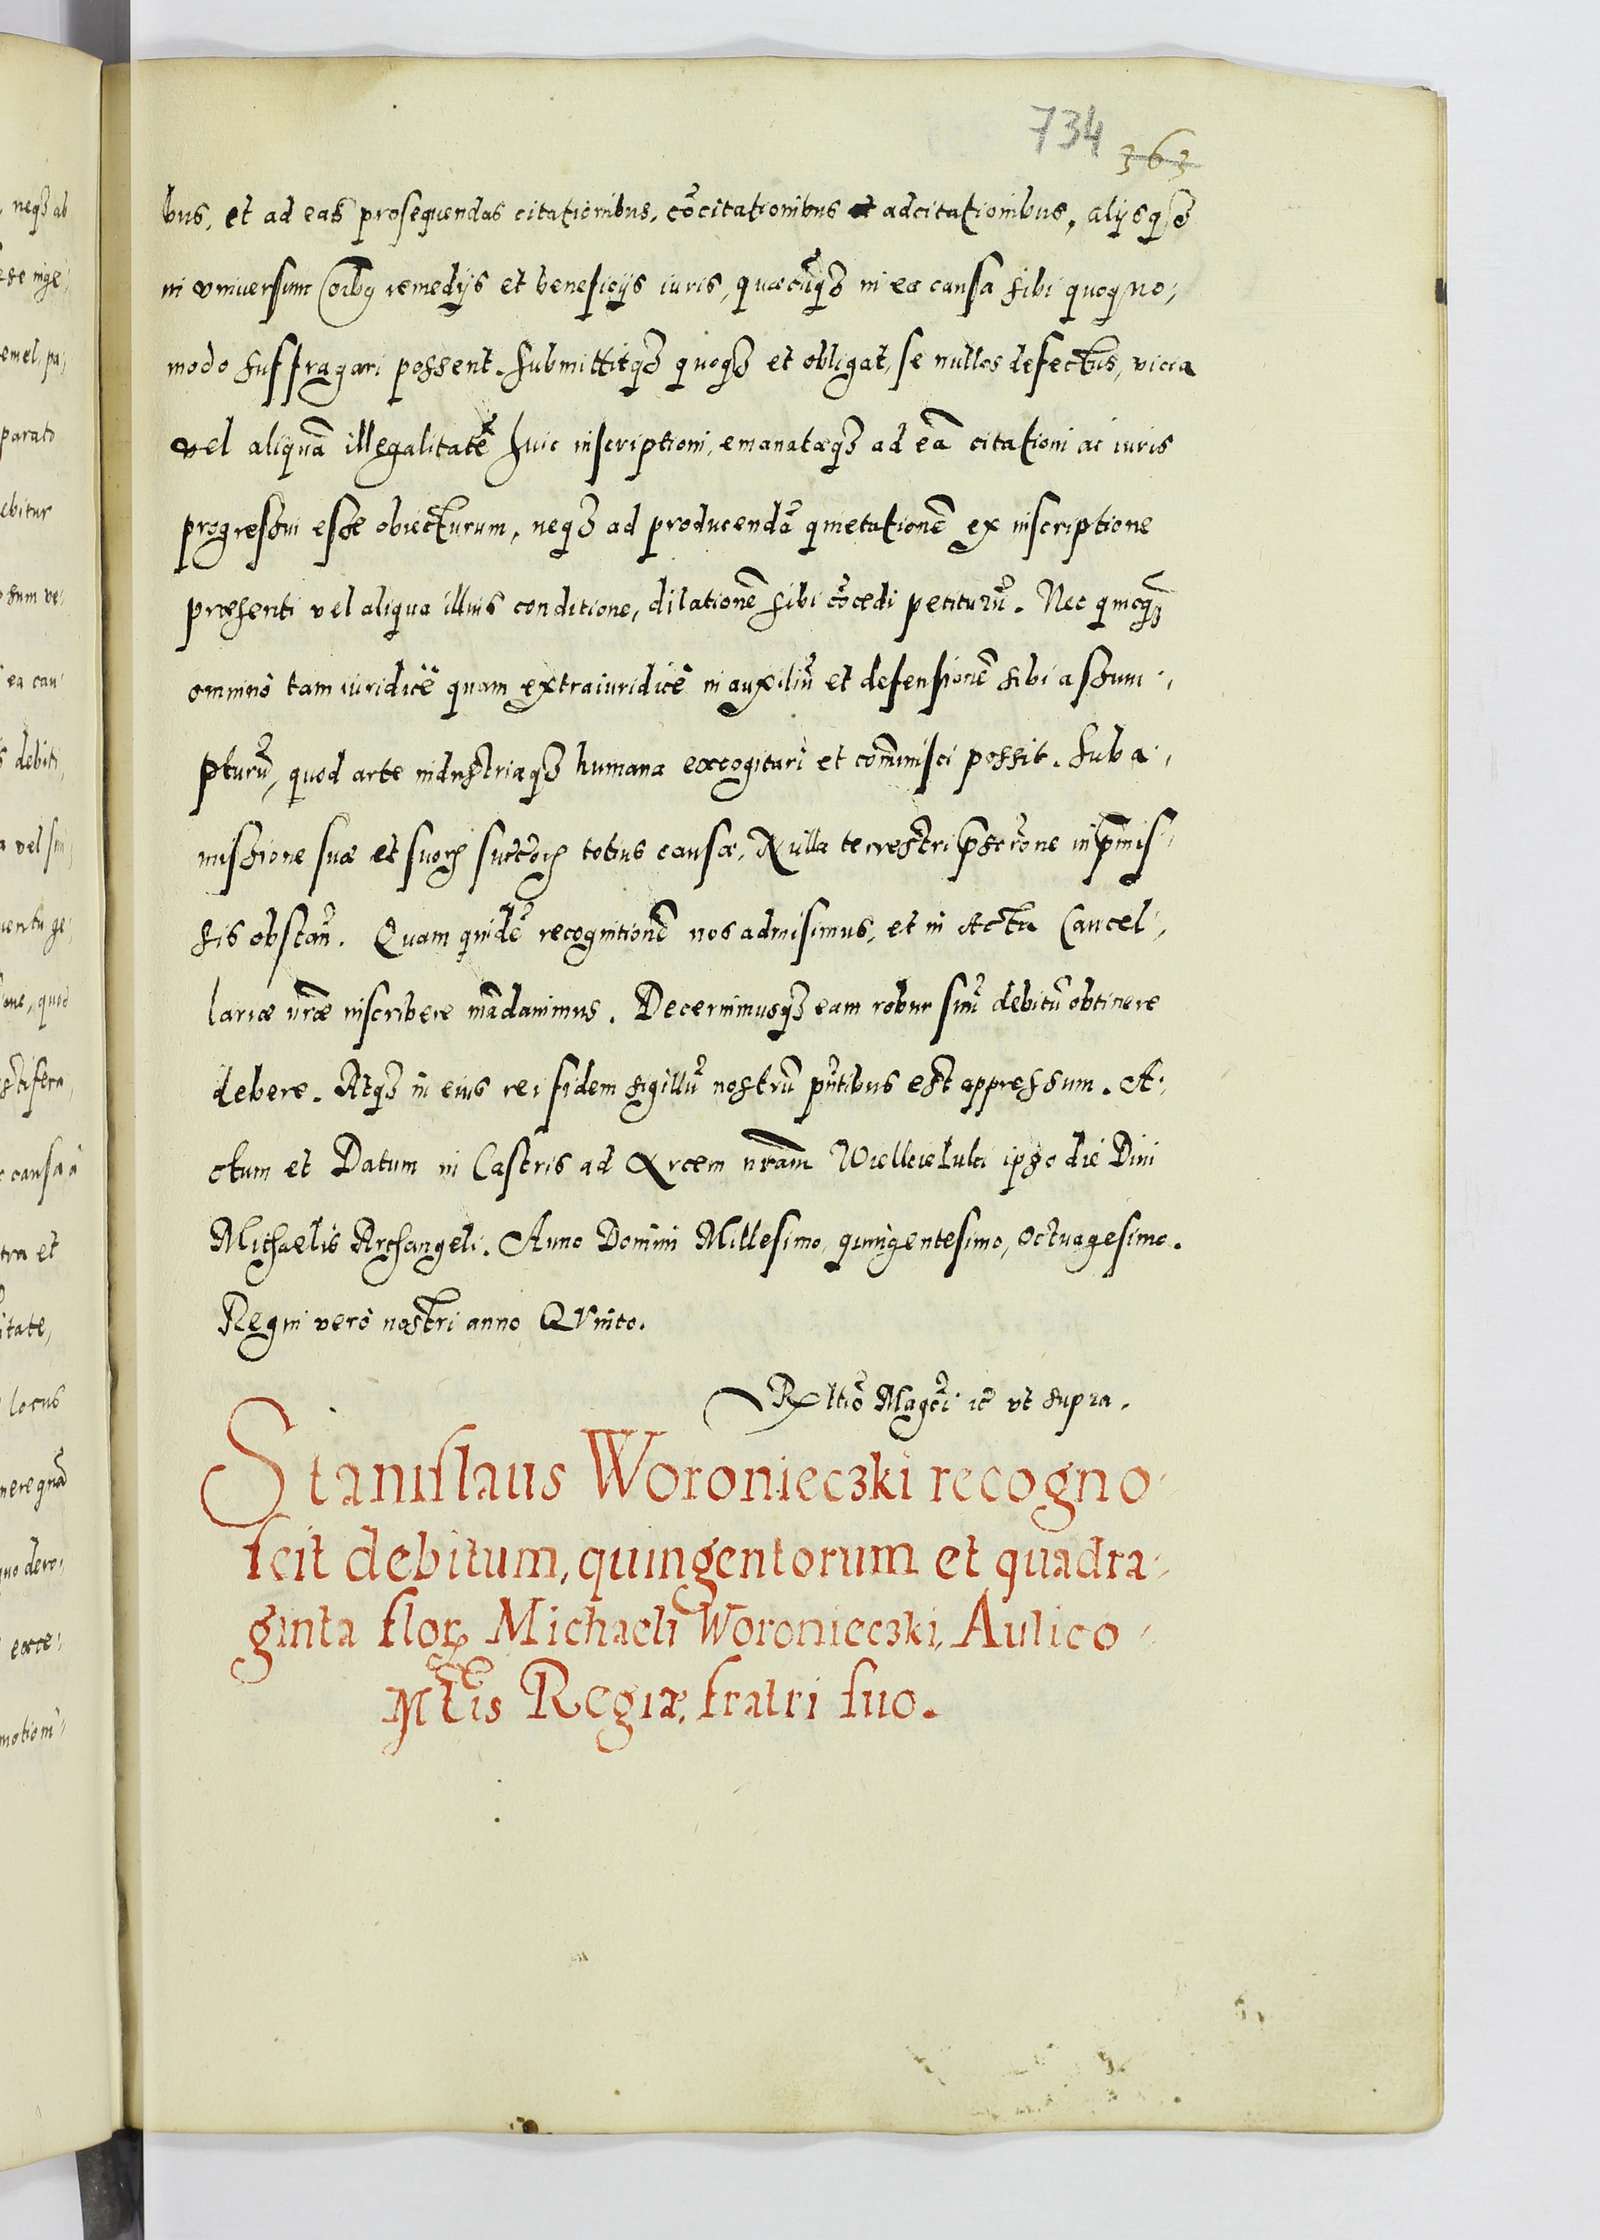 734 363
bus, et ad eas prosequendas citationibus, cõcitationibus et adcitationibus, alijsq3
in vniuersum oĩbq remedijs et beneficijs iuris, quæcũq3 in ea causa sibi quoquo,
modo suffragari possent. Submittitq3 quoq3 et obligat, se nullos defectus, vicia
vel aliquã illegalitatẽ huic inscriptioni, emanatæq3 ad eã citationi ac iuris
progressui esse obiecturum, neq3 ad producendã quietationẽ ex inscriptione
præsenti vel aliqua illius conditione, dilationẽ sibi cõcedi petiturũ. Nec quicq̃3
omnino tam iuridicè quam extraiuridicè in auxiliũ et defensionẽ sibi assum,
pturũ, quod arte industriaq3 humana excogitari et com̃inisci possit. Sub a,
missione suæ et suoꝝ succ̃oꝝ totius causæ, Nulla terrestri p̃scr̃one in p̃mis,
sis obstan̄. Quam quidẽ recognitionẽ nos admisimus, et in Acta Cancel,
lariæ nr̃æ inscribere mãdauimus. Decernimusq3 eam robur suũ debitũ obtinere
debere. Atq3 in eius rei fidem sigillũ nostrũ pñtibus est appressum. A,
ctum et Datum in Castris ad Arcem nr̃am Wielkieluki ipso die Diui
Michaelis Archangeli. Anno Domini Millesimo, quingentesimo, octuagesimo.
Regni verò nostri anno QVinto.
Rxltiõ Magc̃i ic̃ vt supra.
Stanislaus Woronieczki recogno,
scit debitum, quingentorum et quadra,
ginta floꝝ Michaeli Woronieczki, Aulico
Mt̃is Regiæ, fratri suo.
neq3 ab
emel, pa,
parato
ebitur
sum ve,
ea cau,
debiti,
vel sui,
quod
stifera,
causa a
tra et
itate,
locus
quo dero,
exce,
motioni,